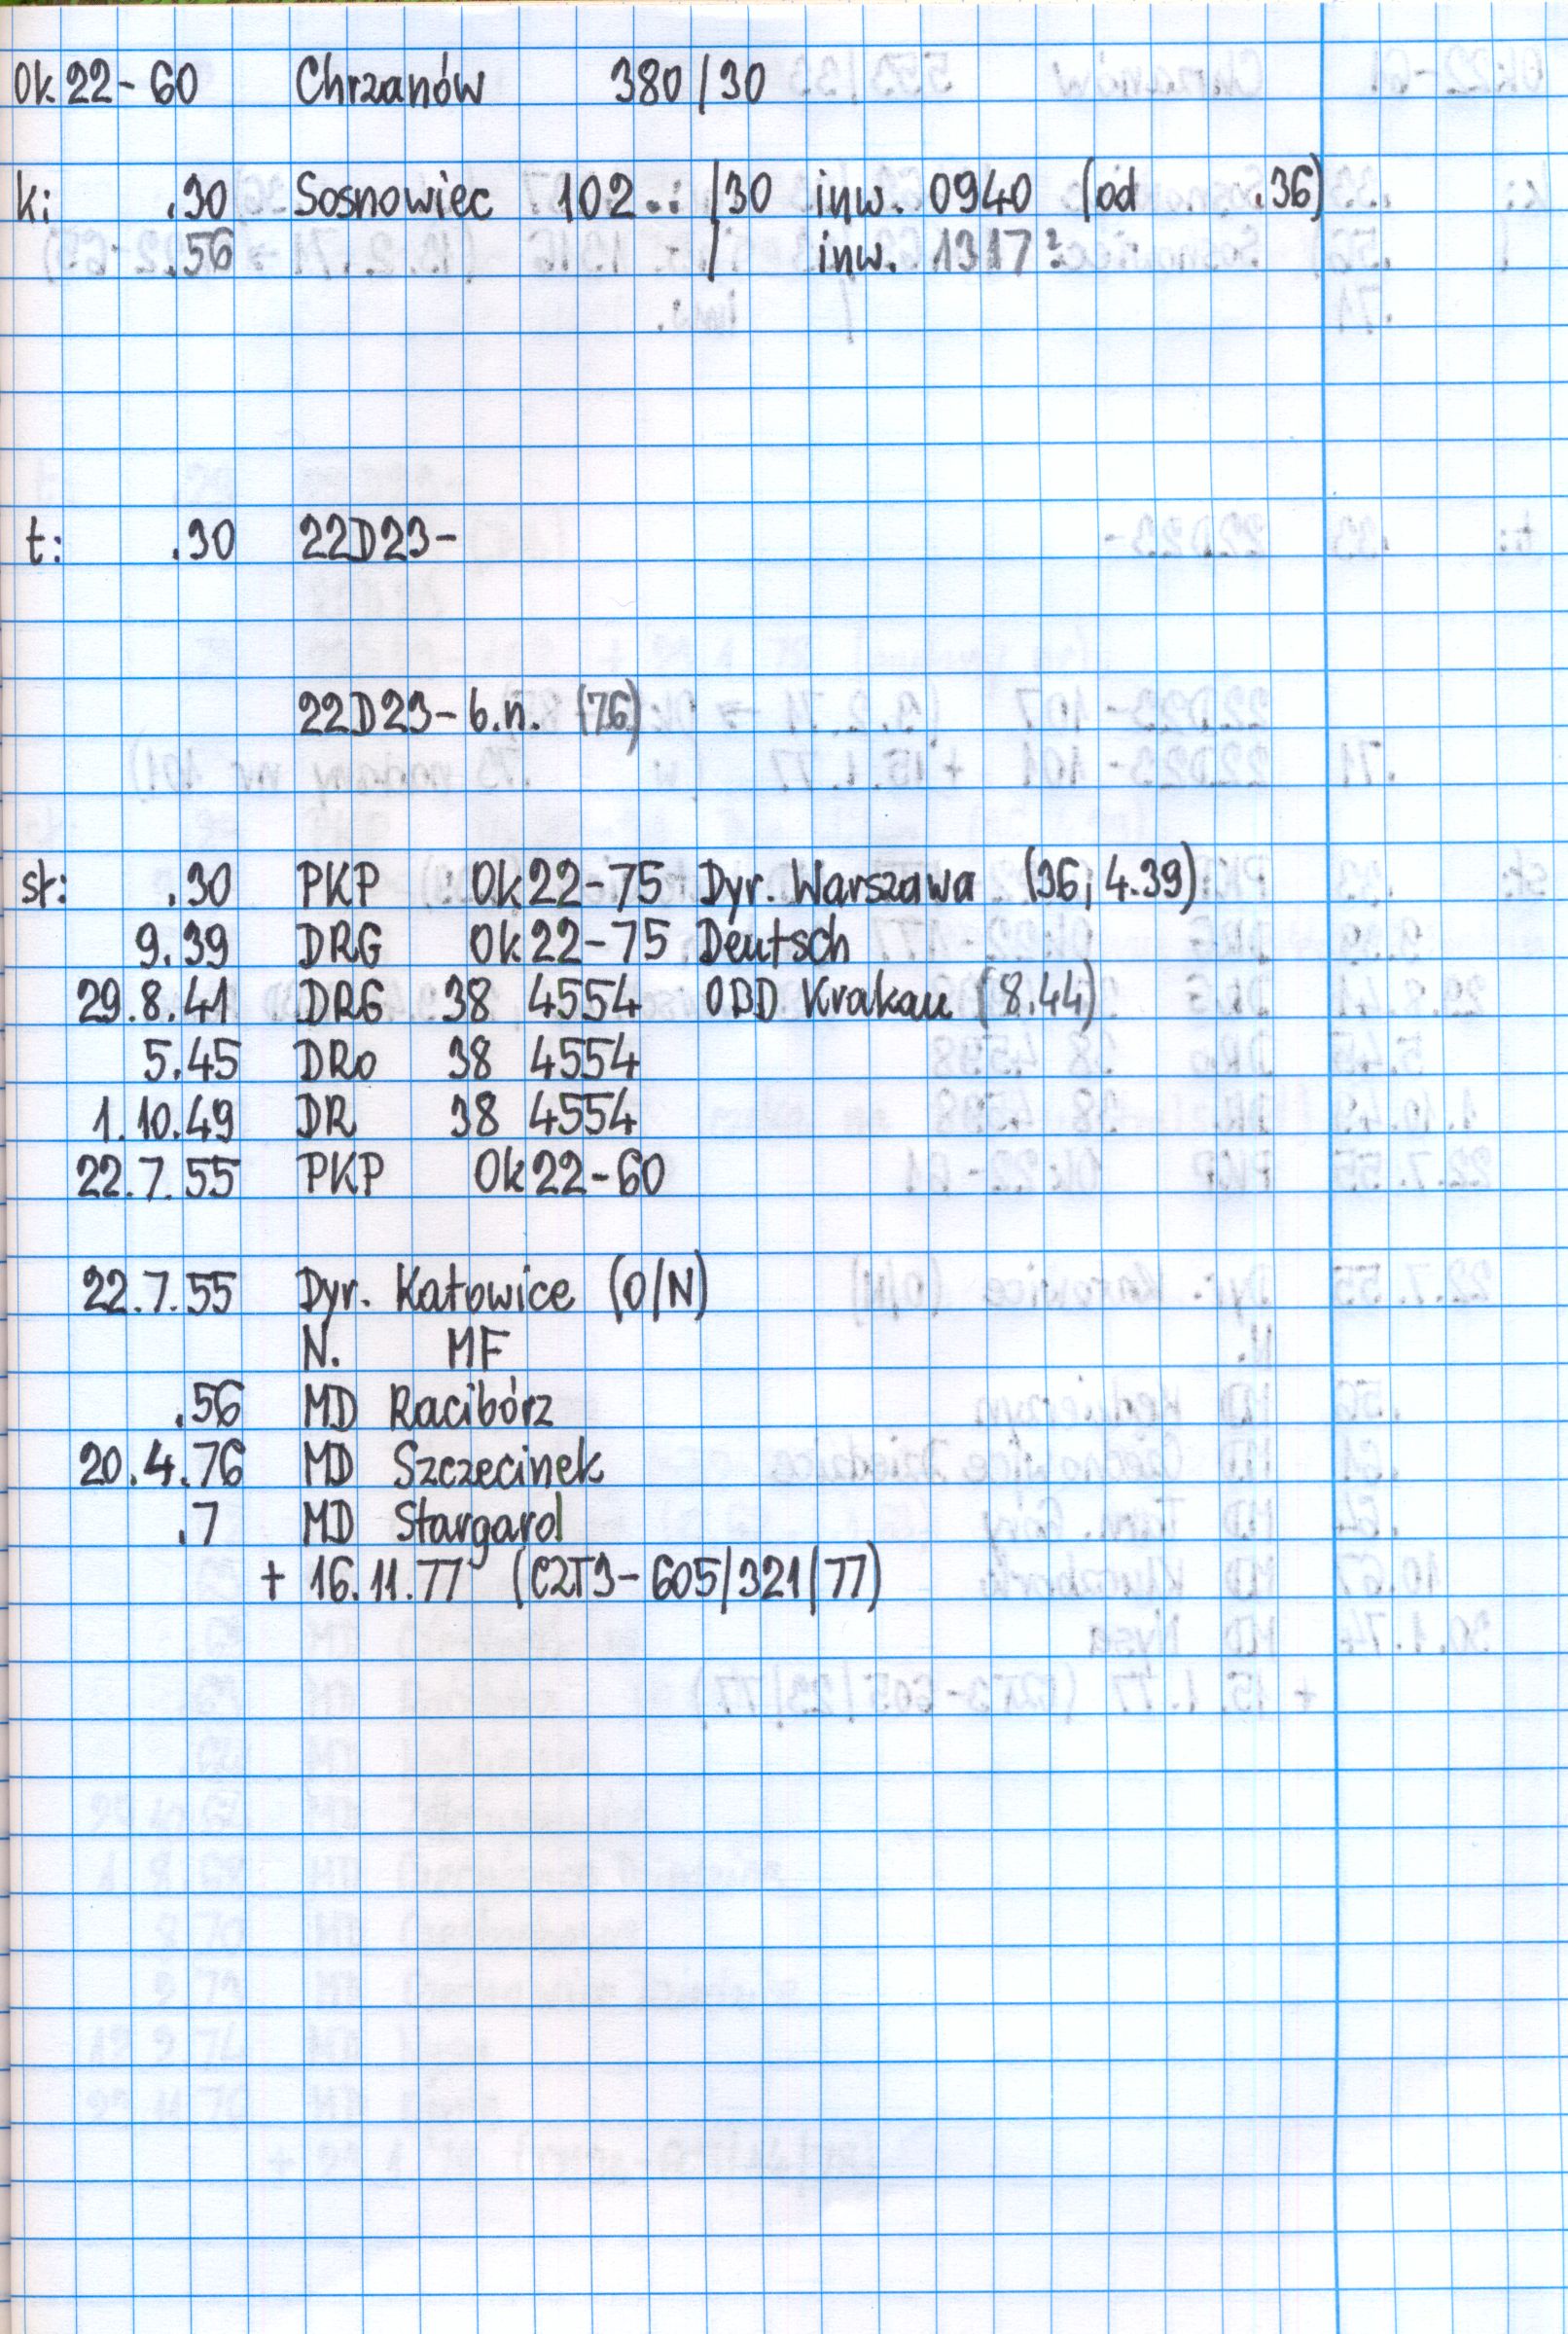 Ok22-60 Chrzanów 380/30
k: .30 Sosnowiec 102.. /30 inw. 0940 (od .36)
.56 / inw. 1317?
t: .30 22D23-
22D23- b.n. (76)
sł: .30 PKP Ok22-75 Dyr. Warszawa (36, 4.39)
9.39 DRG Ok22-75 Deutsch
29.8.41 DRG 38 4554 OBD Krakau (8.44)
5.45 DRo 38 4554
1.10.49 DR 38 4554
22.7.55 PKP Ok22-60
22.7.55 Dyr. Katowice (O/N)
N. MF
.56 MD Racibórz
20.4.76 MD Szczecinek
.7 MD Stargard
+ 16.11.77 (CZT3-605/321/77)